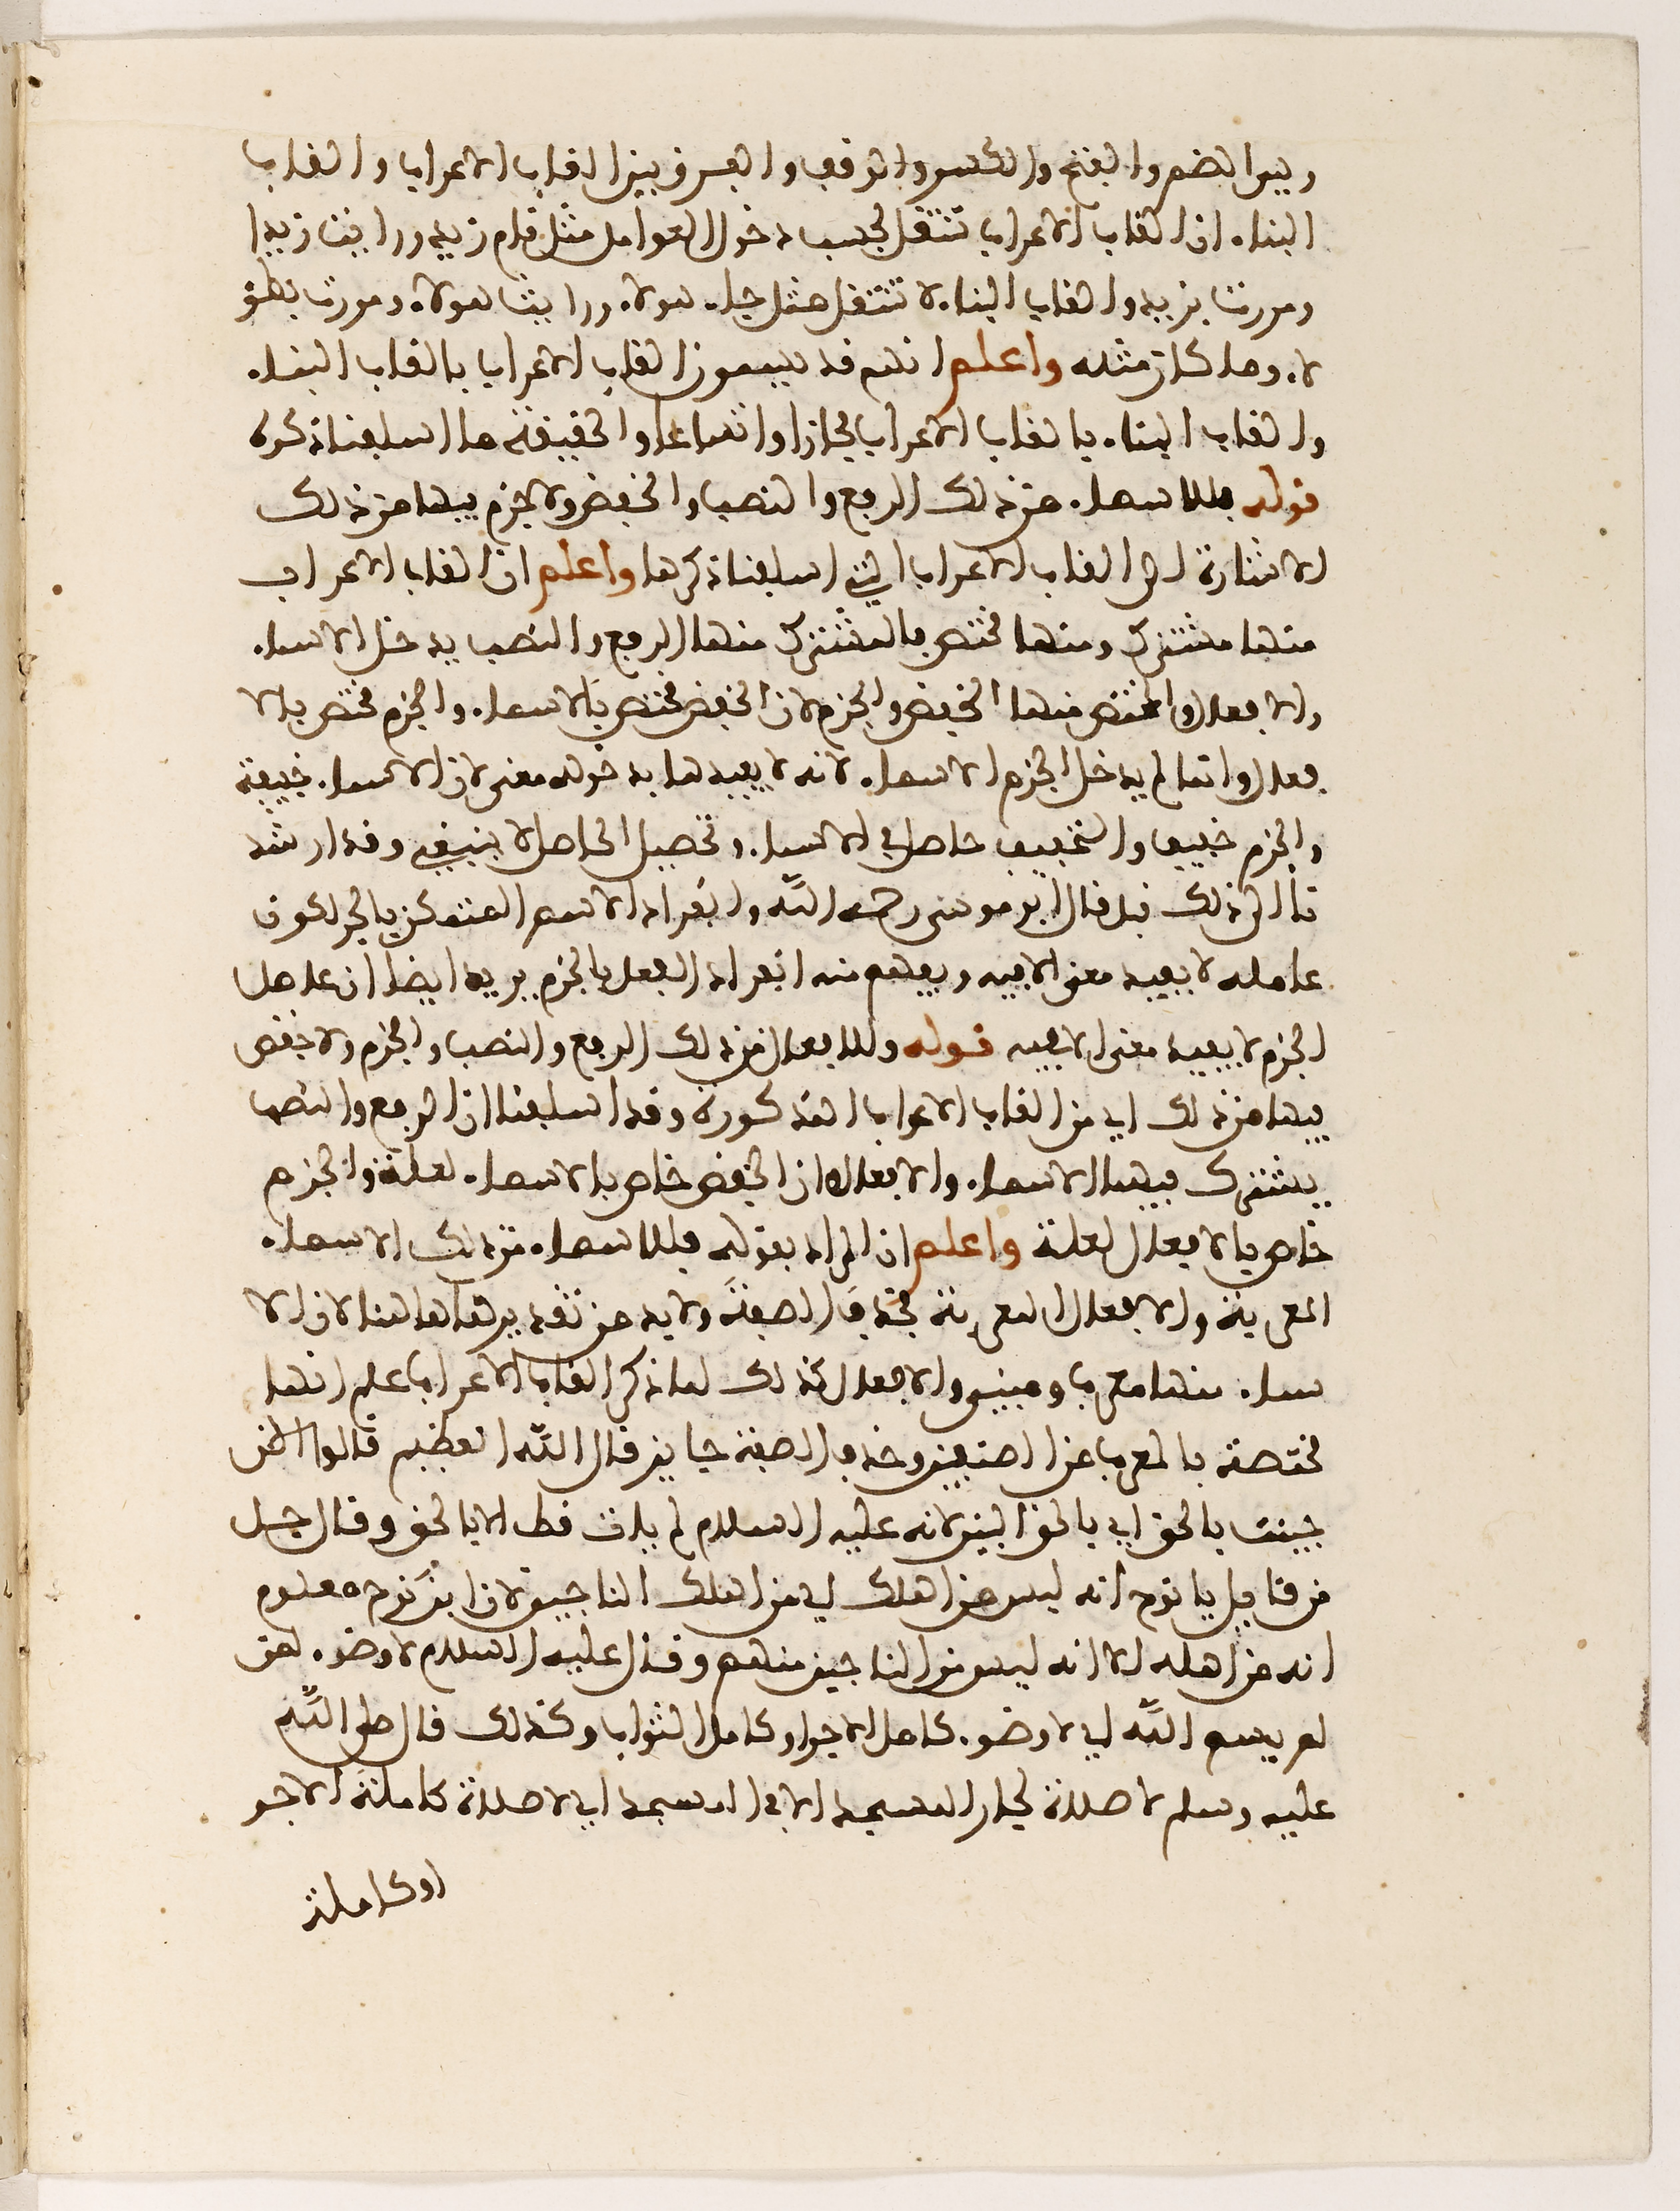 وهي الضم والفتح والكسر والوقف والفرق بين القاب الاعراب والقاب
البناء ان القاب الاعراب تنتقل بحسب دخول العوامل مثل قام زيد ورايت زيدا
ومررت بزيد والقاب البناء لا تنتقل مثل جاء هولاء ورايت هولاء ومررت بهؤ
لاء وما كان مثله واعلم انهم قد يسمون القاب الاعراب بالقاب البناء
والقاب البناء بالقاب الاعراب مجازا واتساعا والحقيقة ما اسلفنا ذكره
قوله فللاسماء من ذلك الرفع والنصب والخفض ولا جزم فيها من ذلك
الاشارة الى القاب الاعراب التي اسلفنا ذكرها واعلم ان القاب الاعراب
منها مشترك ومنها مختص فالمشترك منها الرفع والنصب يدخل الاسماء
والافعال والمختص منها الخفض والجزم لان الخفض مختص بالاسماء والجزم مختص بالا
فعال وانما لم يدخل الجزم الاسماء لانه لا يفيدها بدخوله معنى لان الاسماء خفيفة
والجزم خفيف والتخفيف حاصل في الاسماء وتحصيل الحاصل لا ينبغي وقد ارشد
نا الى ذلك قبل قال ابو موسى رحمه الله وانفراد الاسم المتمكن بالجر لكون
عامله لا يفيد معنى الا فيه ويفهم منه انفراد الفعل بالجزم يريد ايضا ان عامل
الجزم لا يفيد معنى الا فيه قوله وللافعال من ذلك الرفع والنصب والجزم ولا خفض
فيها من ذلك اي من القاب الاعراب المذكورة وقد اسلفنا ان الرفع والنصب
يشترك فيهما الاسماء والافعال وان الخفض خاص بالاسماء لعلة والجزم
خاص بالافعال لعلة واعلم ان المراد بقوله فللاسماء من ذلك الاسماء
المعربة والافعال المعربة فحذف الصفة ولا بد من تقديرها هاهنا لان الا
سماء منها معرب ومبني والافعال كذلك لما ذكر القاب الاعراب علم انها
مختصة بالمعرب من الصنفين وحذف الصفة جايز قال الله العظيم قالوا الان
جيت بالحق اي بالحق البين لانه عليه السلام لم يات قط الا بالحق وقال جل
من قايل يا نوح انه ليس من اهلك اي من اهلك الناجين لان ابن نوح معلوم
انه من اهله الا انه ليس من الناجين منهم وقال عليه السلام لا وضوء لمن
لم يسم الله اي لا وضوء كامل الاجر او كامل الثواب وكذلك قال صلى الله
عليه وسلم لا صلاة لجار المسجد الا في المسجد اي لا صلاة كاملة الاجر
او كاملة